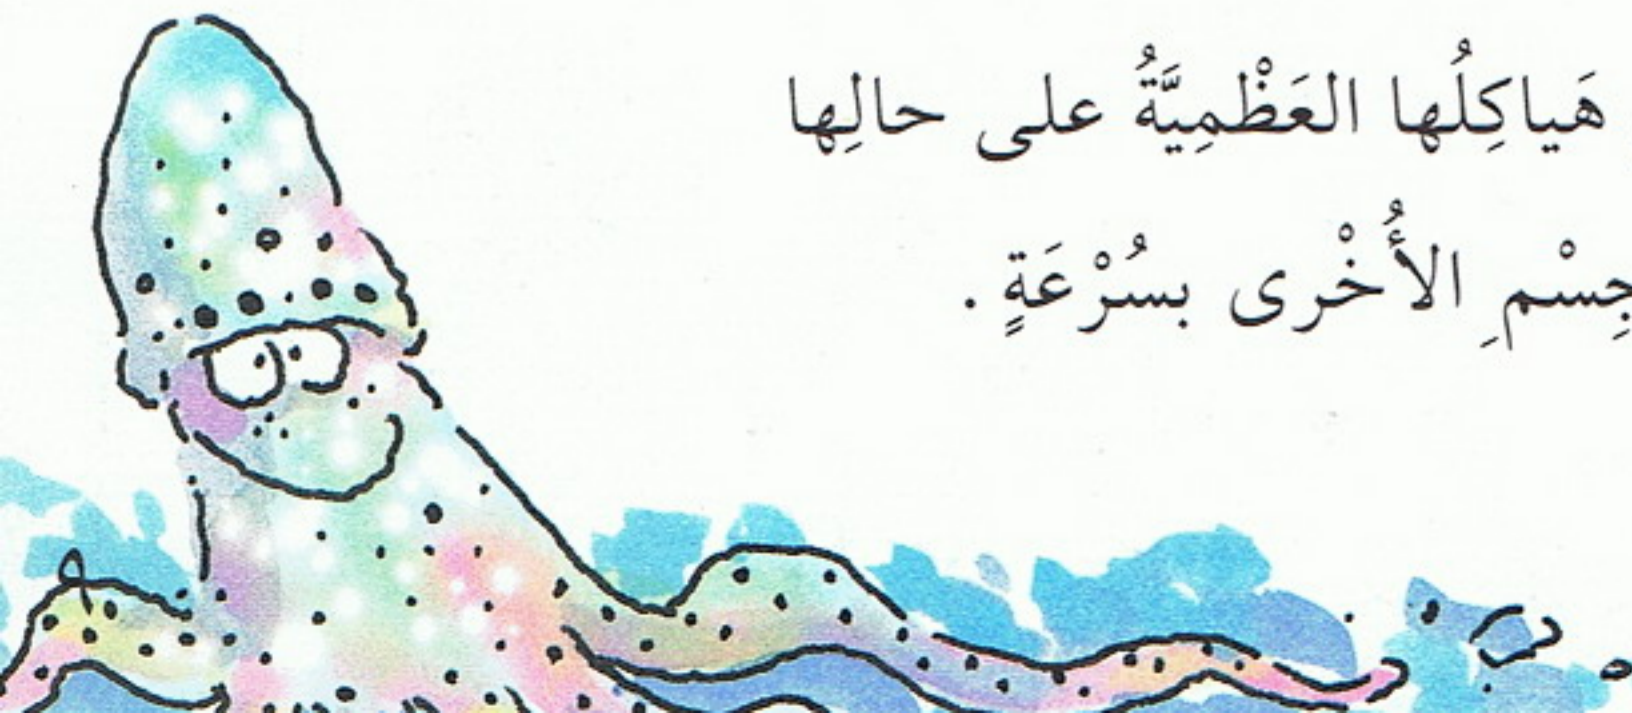 هَياكِلُها العَظْمِيَّةُ على حالِها
جِسْمِ الأُخْرى بسُرْعَةٍ .